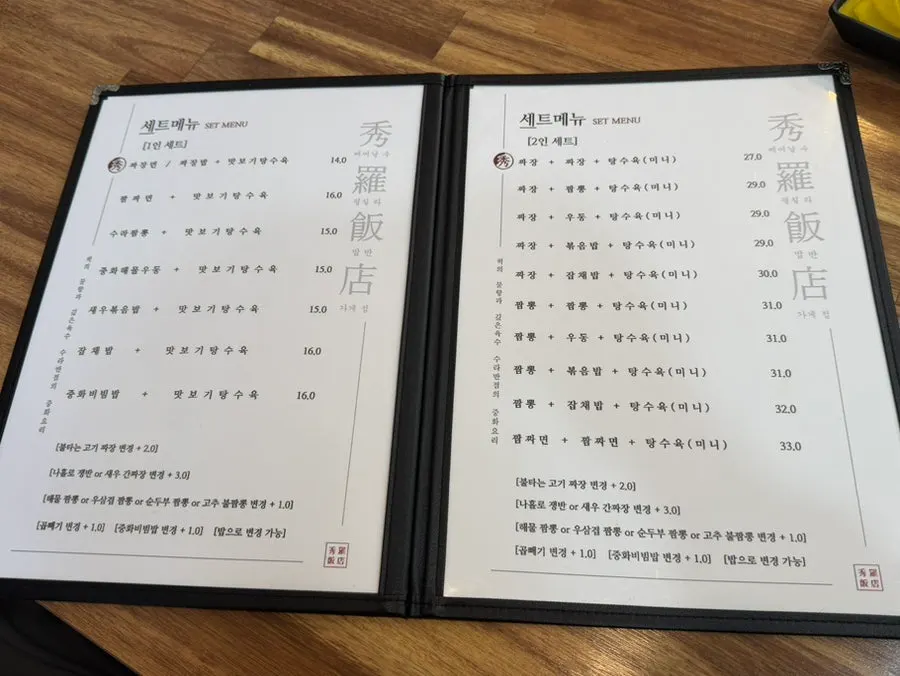 세트메뉴 SET MENU
[1인 세트]
秀 짜장면 / 짜장밥 + 맛보기탕수육 14,0
짬짜면 + 맛보기탕수육 16,0
수라짬뽕 + 맛보기탕수육 15,0
중화해물우동 + 맛보기탕수육 15,0
새우볶음밥 + 맛보기탕수육 15,0
잡채밥 + 맛보기탕수육 16,0
중화비빔밥 + 맛보기탕수육 16,0
[불타는 고기 짜장 변경 + 2.0]
[나홀로 쟁반 or 새우 간짜장 변경 + 3.0]
[해물 짬뽕 or 우삼겹 짬뽕 or 순두부 짬뽕 or 고추 불짬뽕 변경 + 1.0]
[곱빼기 변경 + 1.0] [중화비빔밥 변경 + 1.0] [밥으로 변경 가능]
깊은육수 수라반점의 중화요리
秀
빼어날 수
羅
飯
밥 반
店
가게 점
秀羅
飯店
세트메뉴 SET MENU
[2인 세트]
秀 짜장 + 짜장 + 탕수육(미니) 27,0
짜장 + 짬뽕 + 탕수육(미니) 29,0
짜장 + 우동 + 탕수육(미니) 29,0
짜장 + 볶음밥 + 탕수육(미니) 29,0
짜장 + 잡채밥 + 탕수육(미니) 30,0
짬뽕 + 짬뽕 + 탕수육(미니) 31,0
짬뽕 + 우동 + 탕수육(미니) 31,0
짬뽕 + 볶음밥 + 탕수육(미니) 31,0
짬뽕 + 잡채밥 + 탕수육(미니) 32,0
짬짜면 + 짬짜면 + 탕수육(미니) 33,0
[불타는 고기 짜장 변경 + 2.0]
[나홀로 쟁반 or 새우 간짜장 변경 + 3.0]
[해물 짬뽕 or 우삼겹 짬뽕 or 순두부 짬뽕 or 고추 불짬뽕 변경 + 1.0]
[곱빼기 변경 + 1.0] [중화비빔밥 변경 + 1.0] [밥으로 변경 가능]
깊은육수 수라반점의 중화요리
秀
빼어날 수
羅
飯
밥 반
店
가게 점
秀羅
飯店